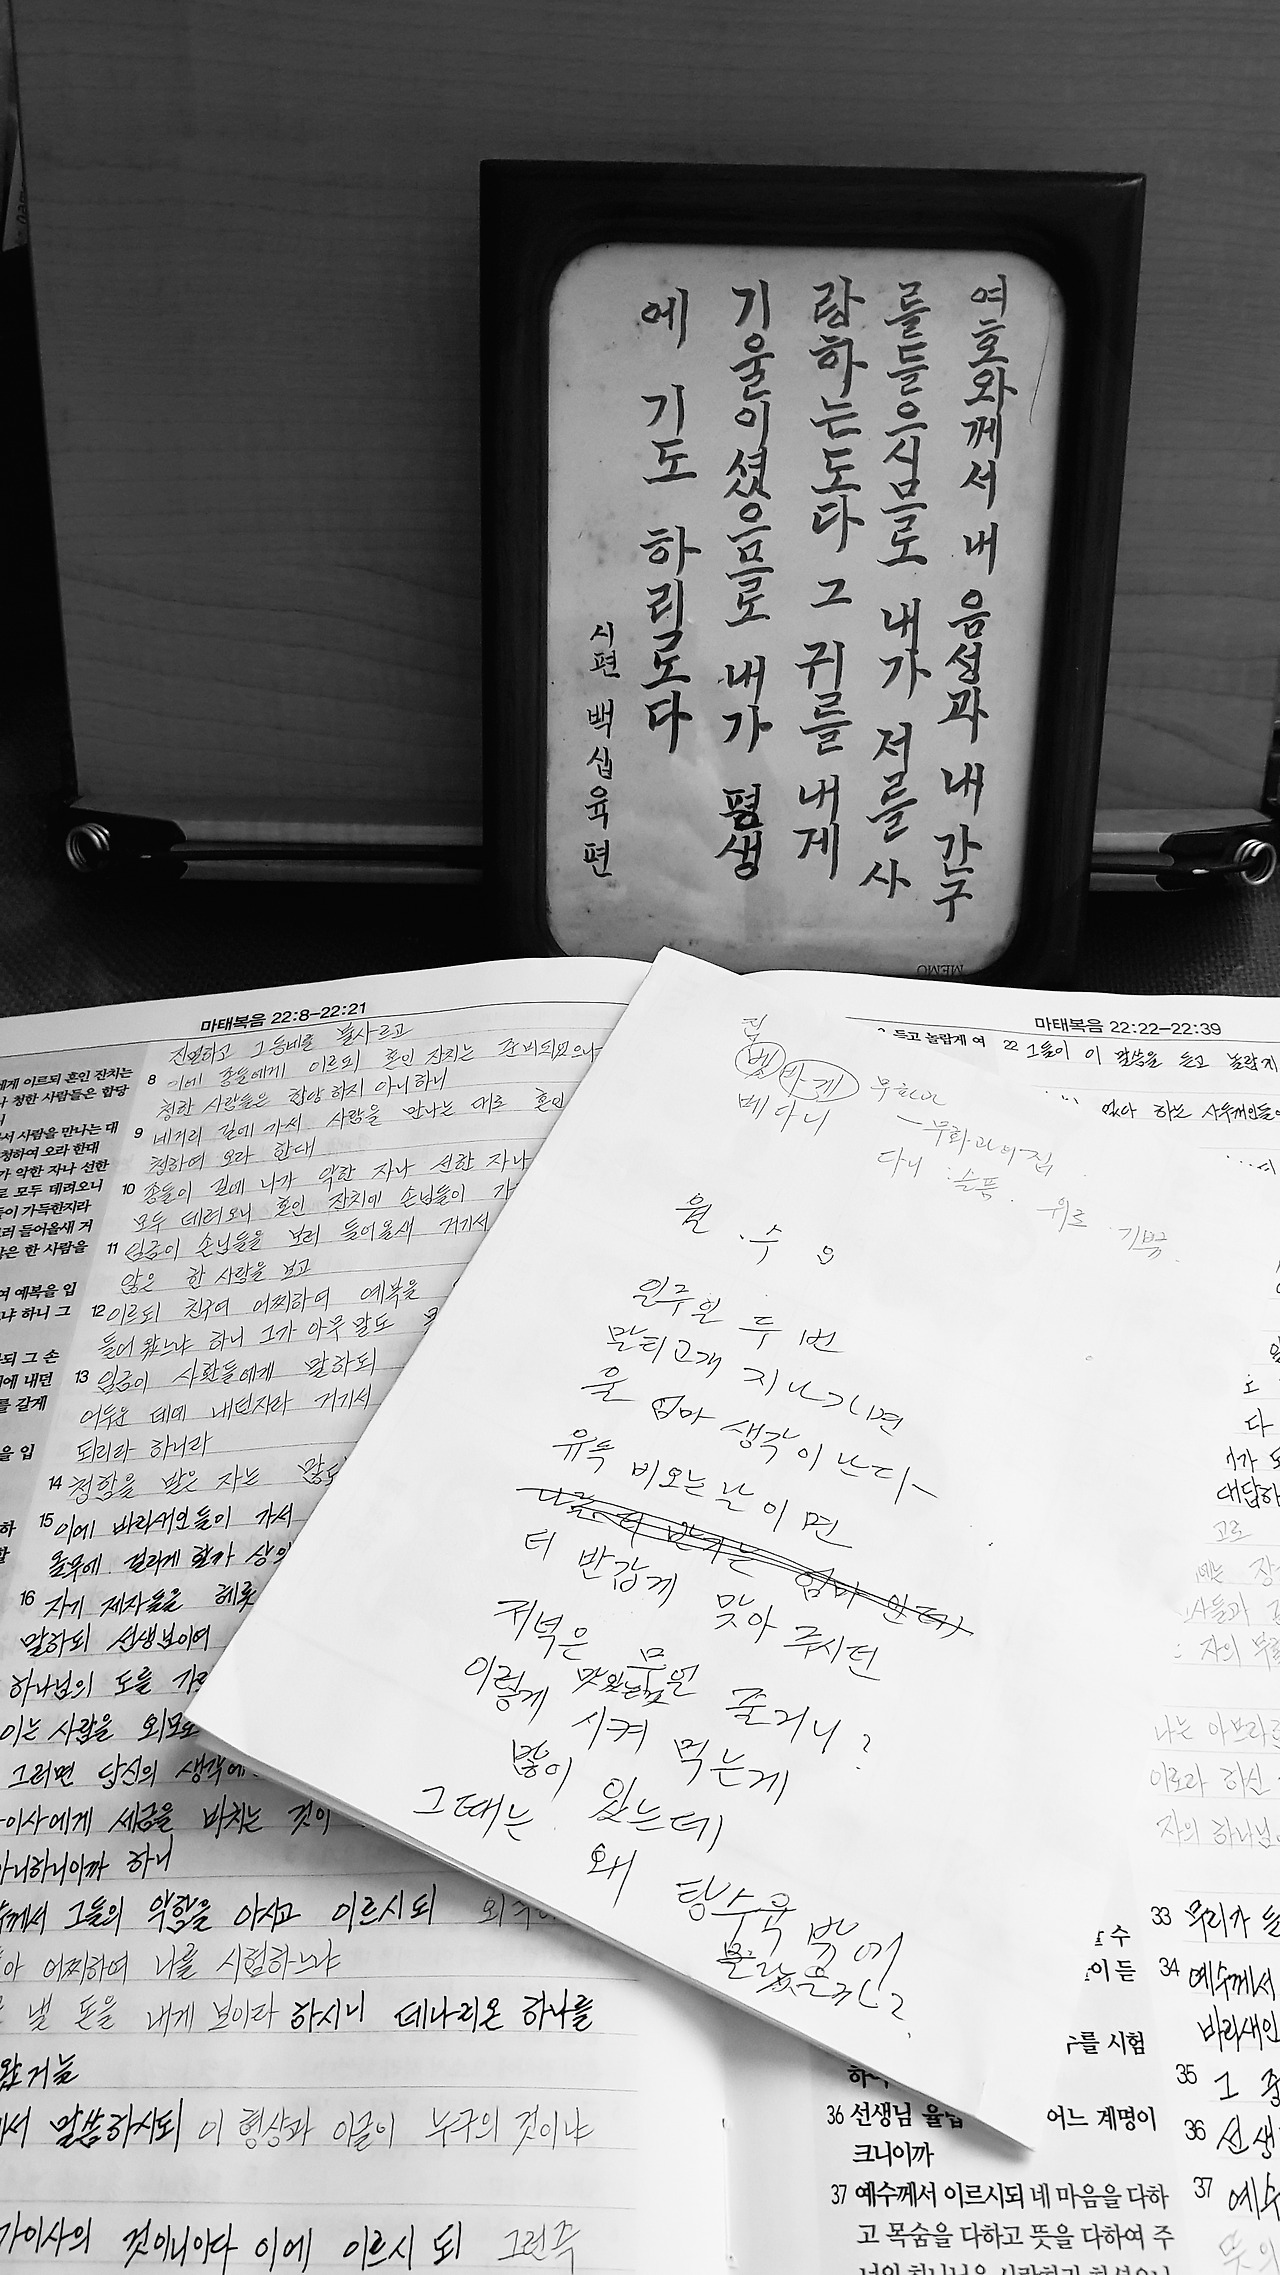 여호와께서 내 음성과 내 간구
를들으시므로 내가 저를 사
랑하는도다 그 귀를 내게
기울이셨으므로 내가 평생
에 기도 하리로다
시편 백십육 편
MEMO
마태복음 22:8-22:21
진멸하고 그 동네를 불사르고
8 이에 종들에게 이르되 혼인 잔치는 준비되었으나
청한 사람들은 합당하지 아니하니
9 네거리 길에 가서 사람을 만나는 대로 혼인
청하여 오라 한대
10 종들이 길에 나가 악한 자나 선한 자나
모두 데려오니 혼인 잔치에 손님들이 가
11 임금이 손님들을 보러 들어올새 거기서
않은 한 사람을 보고
12 이르되 친구여 어찌하여 예복을
들어 왔느냐 하니 그가 아무 말도
13 임금이 사환들에게 말하되
어두운 데에 내던지라 거기서
되리라 하니라
14 청함을 받은 자는 많되
15 이에 바리새인들이 가서
올무에 걸리게 할까 상의
16 자기 제자들을 헤롯
말하되 선생님이여
하나님의 도를
이는 사람을 외모로
그러면 당신의 생각에
가이사에게 세금을 바치는 것이
아니하니이까 하니
께서 그들의 악함을 아시고 이르시되
아 어찌하여 나를 시험하느냐
낼 돈을 내게 보이라 하시니 데나리온 하나를
왔거늘
서 말씀하시되 이 형상과 이 글이 누구의 것이냐
가이사의 것이니이다 이에 이르시되 그런즉
게 이르되 혼인 잔치는
나 청한 사람들은 합당
서 사람을 만나는 대
청하여 오라 한대
가 악한 자나 선한
로 모두 데려오니
들이 가득한지라
러 들어올새 거
않은 한 사람을
여 예복을 입
냐 하니 그
되 그 손
에 내던
를 갈게
집
벧 바게
베다니
무화과
무화과의 집
다니 : 슬픔. 위로. 기쁨
월 . 수 요
일주일 두 번
말티고개 지나가면
울 엄마 생각이 난다
유독 비오는 날이면
더 반갑게 맞아 주시던
저녁은 무원 줄거니?
이렇게 맛있는것 시켜 먹는게
많이 있는데
그때는 왜 탕수육 밖에
몰랐을까?
마태복음 22:22-22:39
듣고 놀랍게 여 22 그들이 이 말씀을 듣고 놀랍게
없다 하는 사두개인들이
다
대답하
나는 아브라
이로라 하신
자의 하나님
33 무리가 듣
34 예수께서
바리새인
35 그 중
36 선생
37 예수
수
이 듣
를 시험
36 선생님 율법 어느 계명이
크니이까
37 예수께서 이르시되 네 마음을 다하
고 목숨을 다하고 뜻을 다하여 주